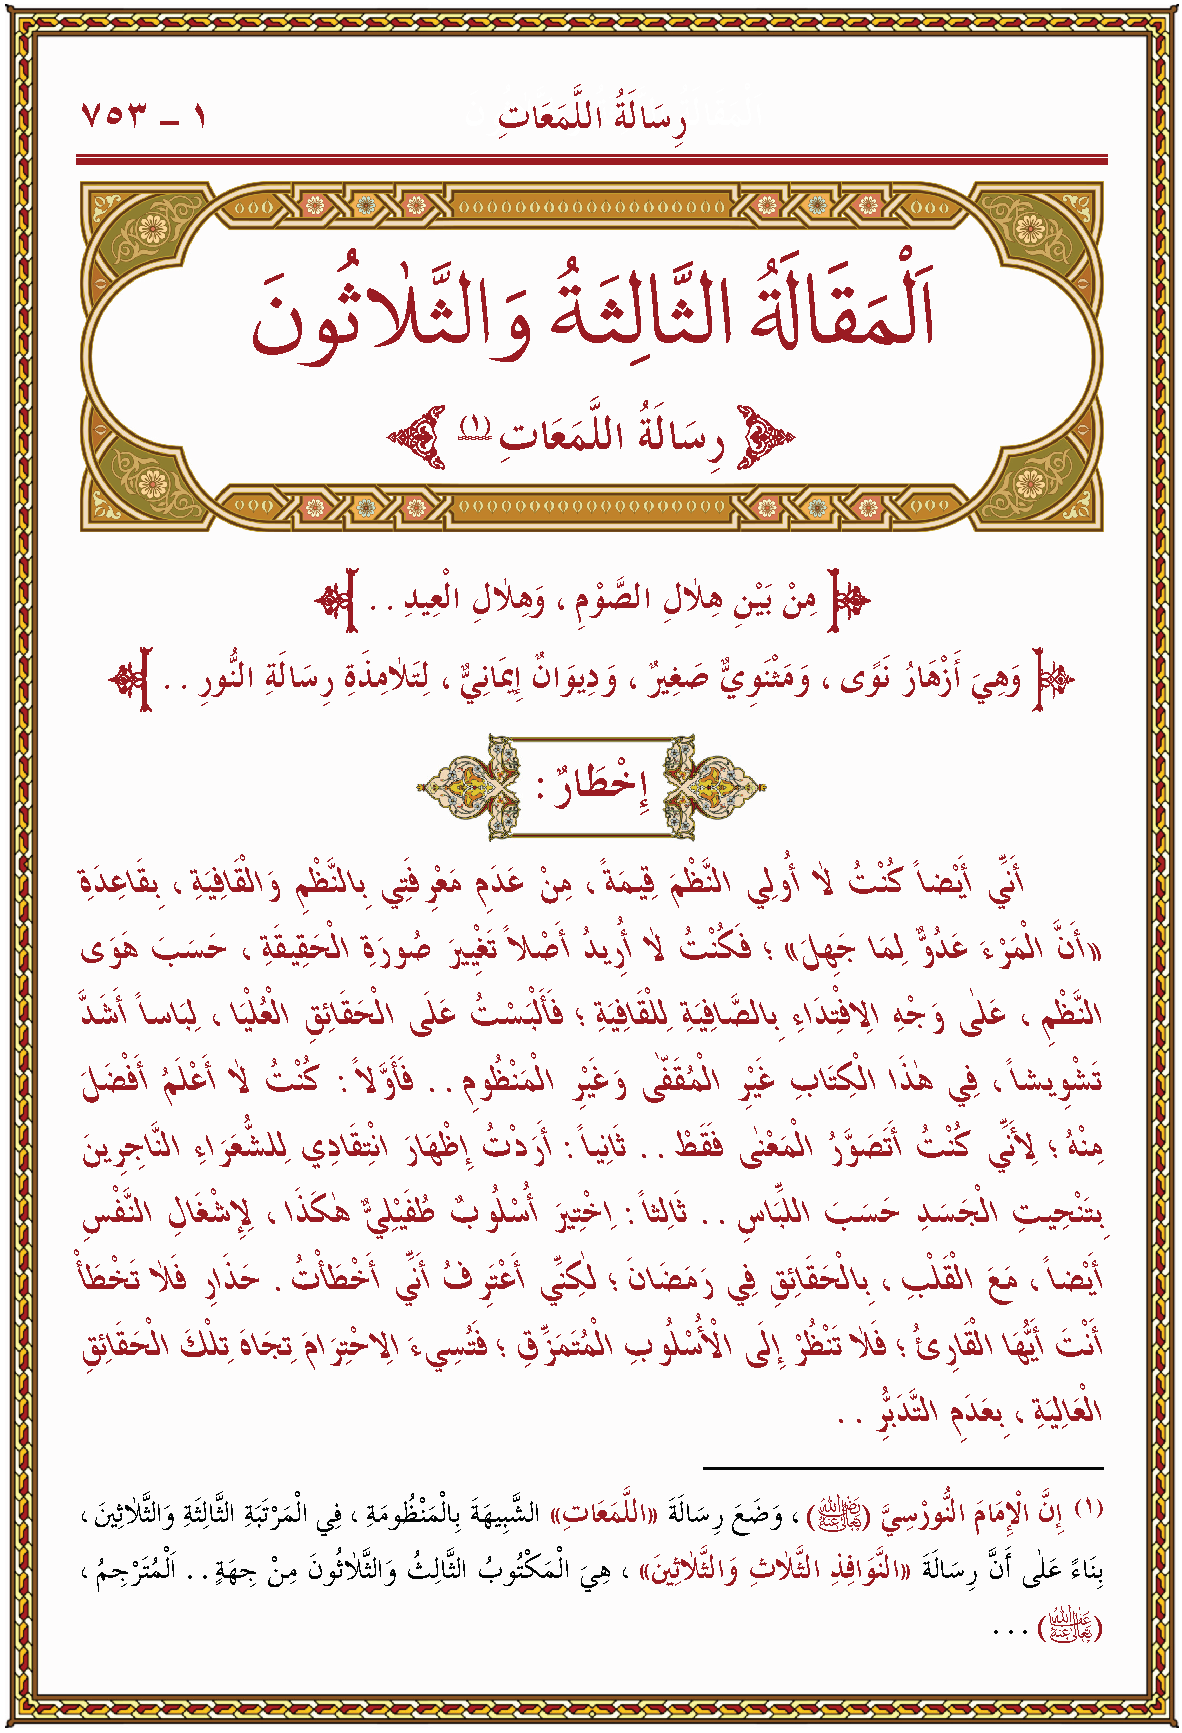 رِسَالَةُ اللَّمَعَاتِ ١ ــ ٧٥٣
اَلْمَقَالَةُ الثَّالِثَةُ وَالثَّلاٰثُونَ
رِسَالَةُ اللَّمَعَاتِ (١)
مِنْ بَيْنِ هِلاٰلِ الصَّوْمِ ، وَهِلاٰلِ الْعِيدِ . .
وَهِيَ أَزْهَارُ نَوًى ، وَمَثْنَوِيٌّ صَغِيرٌ ، وَدِيوَانٌ إِيمَانِيٌّ ، لِتَلاٰمِذَةِ رِسَالَةِ النُّورِ . .
إِخْطَارٌ :
أَنِّي أَيْضاً كُنْتُ لاٰ أُولِي النَّظْمَ قِيمَةً ، مِنْ عَدَمِ مَعْرِفَتِي بِالنَّظْمِ وَالْقَافِيَةِ ، بِقَاعِدَةِ
«أَنَّ الْمَرْءَ عَدُوٌّ لِمَا جَهِلَ» ؛ فَكُنْتُ لاٰ أُرِيدُ أَصْلاً تَغْيِيرَ صُورَةِ الْحَقِيقَةِ ، حَسَبَ هَوَى
النَّظْمِ ، عَلٰى وَجْهِ الِافْتِدَاءِ بِالصَّافِيَةِ لِلْقَافِيَةِ ؛ فَأَلْبَسْتُ عَلَى الْحَقَائِقِ الْعُلْيَا ، لِبَاساً أَشَدَّ
تَشْوِيشاً ، فِي هٰذَا الْكِتَابِ غَيْرِ الْمُقَفّٰى وَغَيْرِ الْمَنْظُومِ . . فَأَوَّلاً : كُنْتُ لاٰ أَعْلَمُ أَفْضَلَ
مِنْهُ ؛ لِأَنِّي كُنْتُ أَتَصَوَّرُ الْمَعْنٰى فَقَطْ . . ثَانِياً : أَرَدْتُ إِظْهَارَ انْتِقَادِي لِلشُّعَرَاءِ النَّاجِرِينَ
بِتَنْحِيتِ الْجَسَدِ حَسَبَ اللِّبَاسِ . . ثَالِثاً : اخْتِيرَ أُسْلُوبٌ طُفَيْلِيٌّ هٰكَذَا ، لِإِشْغَالِ النَّفْسِ
أَيْضاً ، مَعَ الْقَلْبِ ، بِالْحَقَائِقِ فِي رَمَضَانَ ؛ لٰكِنِّي أَعْتَرِفُ أَنِّي أَخْطَأْتُ . حَذَارِ فَلاَ تَخْطَأْ
أَنْتَ أَيُّهَا الْقَارِئُ ؛ فَلاَ تَنْظُرْ إِلَى الْأُسْلُوبِ الْمُتَمَزِّقِ ؛ فَتُسِيءَ الِاحْتِرَامَ تِجَاهَ تِلْكَ الْحَقَائِقِ
الْعَالِيَةِ ، بِعَدَمِ التَّدَبُّرِ . .
(١) إِنَّ الْإِمَامَ النُّورْسِيَّ (رَضِيَ اللهُ تَعَالَى عَنْهُ) ، وَضَعَ رِسَالَةَ «اللَّمَعَاتِ» الشَّبِيهَةَ بِالْمَنْظُومَةِ ، فِي الْمَرْتَبَةِ الثَّالِثَةِ وَالثَّلاٰثِينَ ،
بِنَاءً عَلٰى أَنَّ رِسَالَةَ «النَّوَافِذِ الثَّلاٰثِ وَالثَّلاٰثِينَ» ، هِيَ الْمَكْتُوبُ الثَّالِثُ وَالثَّلاٰثُونَ مِنْ جِهَةٍ . . اَلْمُتَرْجِمُ ،
(عَفَا اللهُ تَعَالَى عَنْهُ) . . .